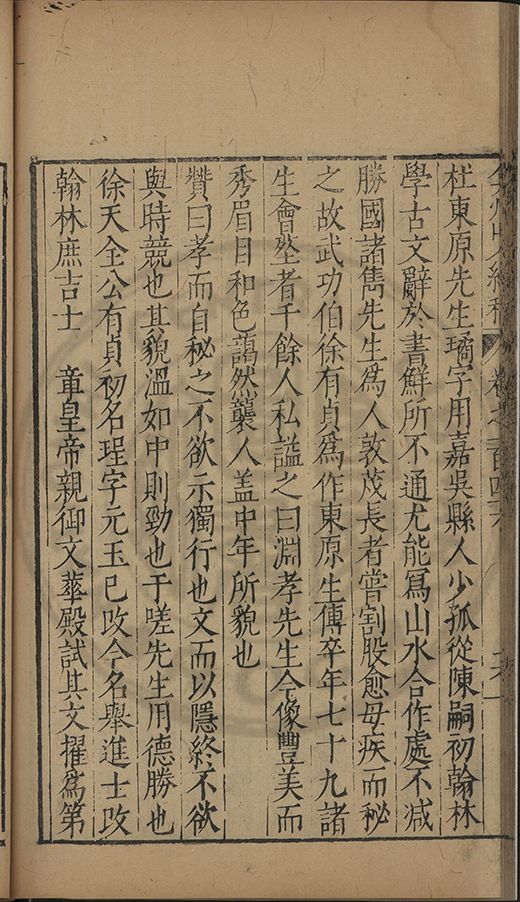 弇州山人續稿 卷之一百四十六
杜東原先生瓊字用嘉吳縣人少孤從陳嗣初翰林
學古文辭於書鮮所不通尤能寫山水合作處不減
勝國諸雋先生爲人敦茂長者嘗割股愈母疾而秘
之故武功伯徐有貞爲作東原生傳卒年七十九諸
生會塟者千餘人私謚之曰淵孝先生今像豐美而
秀眉目和色藹然襲人盖中年所貌也
贊曰孝而自秘之不欲示獨行也文而以隱終不欲
與時競也其貌溫如中則勁也于嗟先生用德勝也
徐天全公有貞初名珵字元玉已攺今名舉進士攺
翰林庶吉士 章皇帝親御文華殿試其文擢爲第